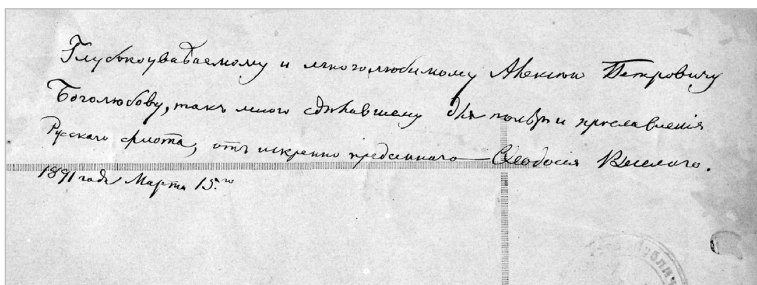 Глубокоуважаемому и многолюбимому Алексѣю Петровичу
Боголюбову, такъ много сдѣлавшему для пользы и прославленія
Русскаго флота, отъ искренно преданнаго Ѳеодосія Веселаго.
1891 года Марта 15.го